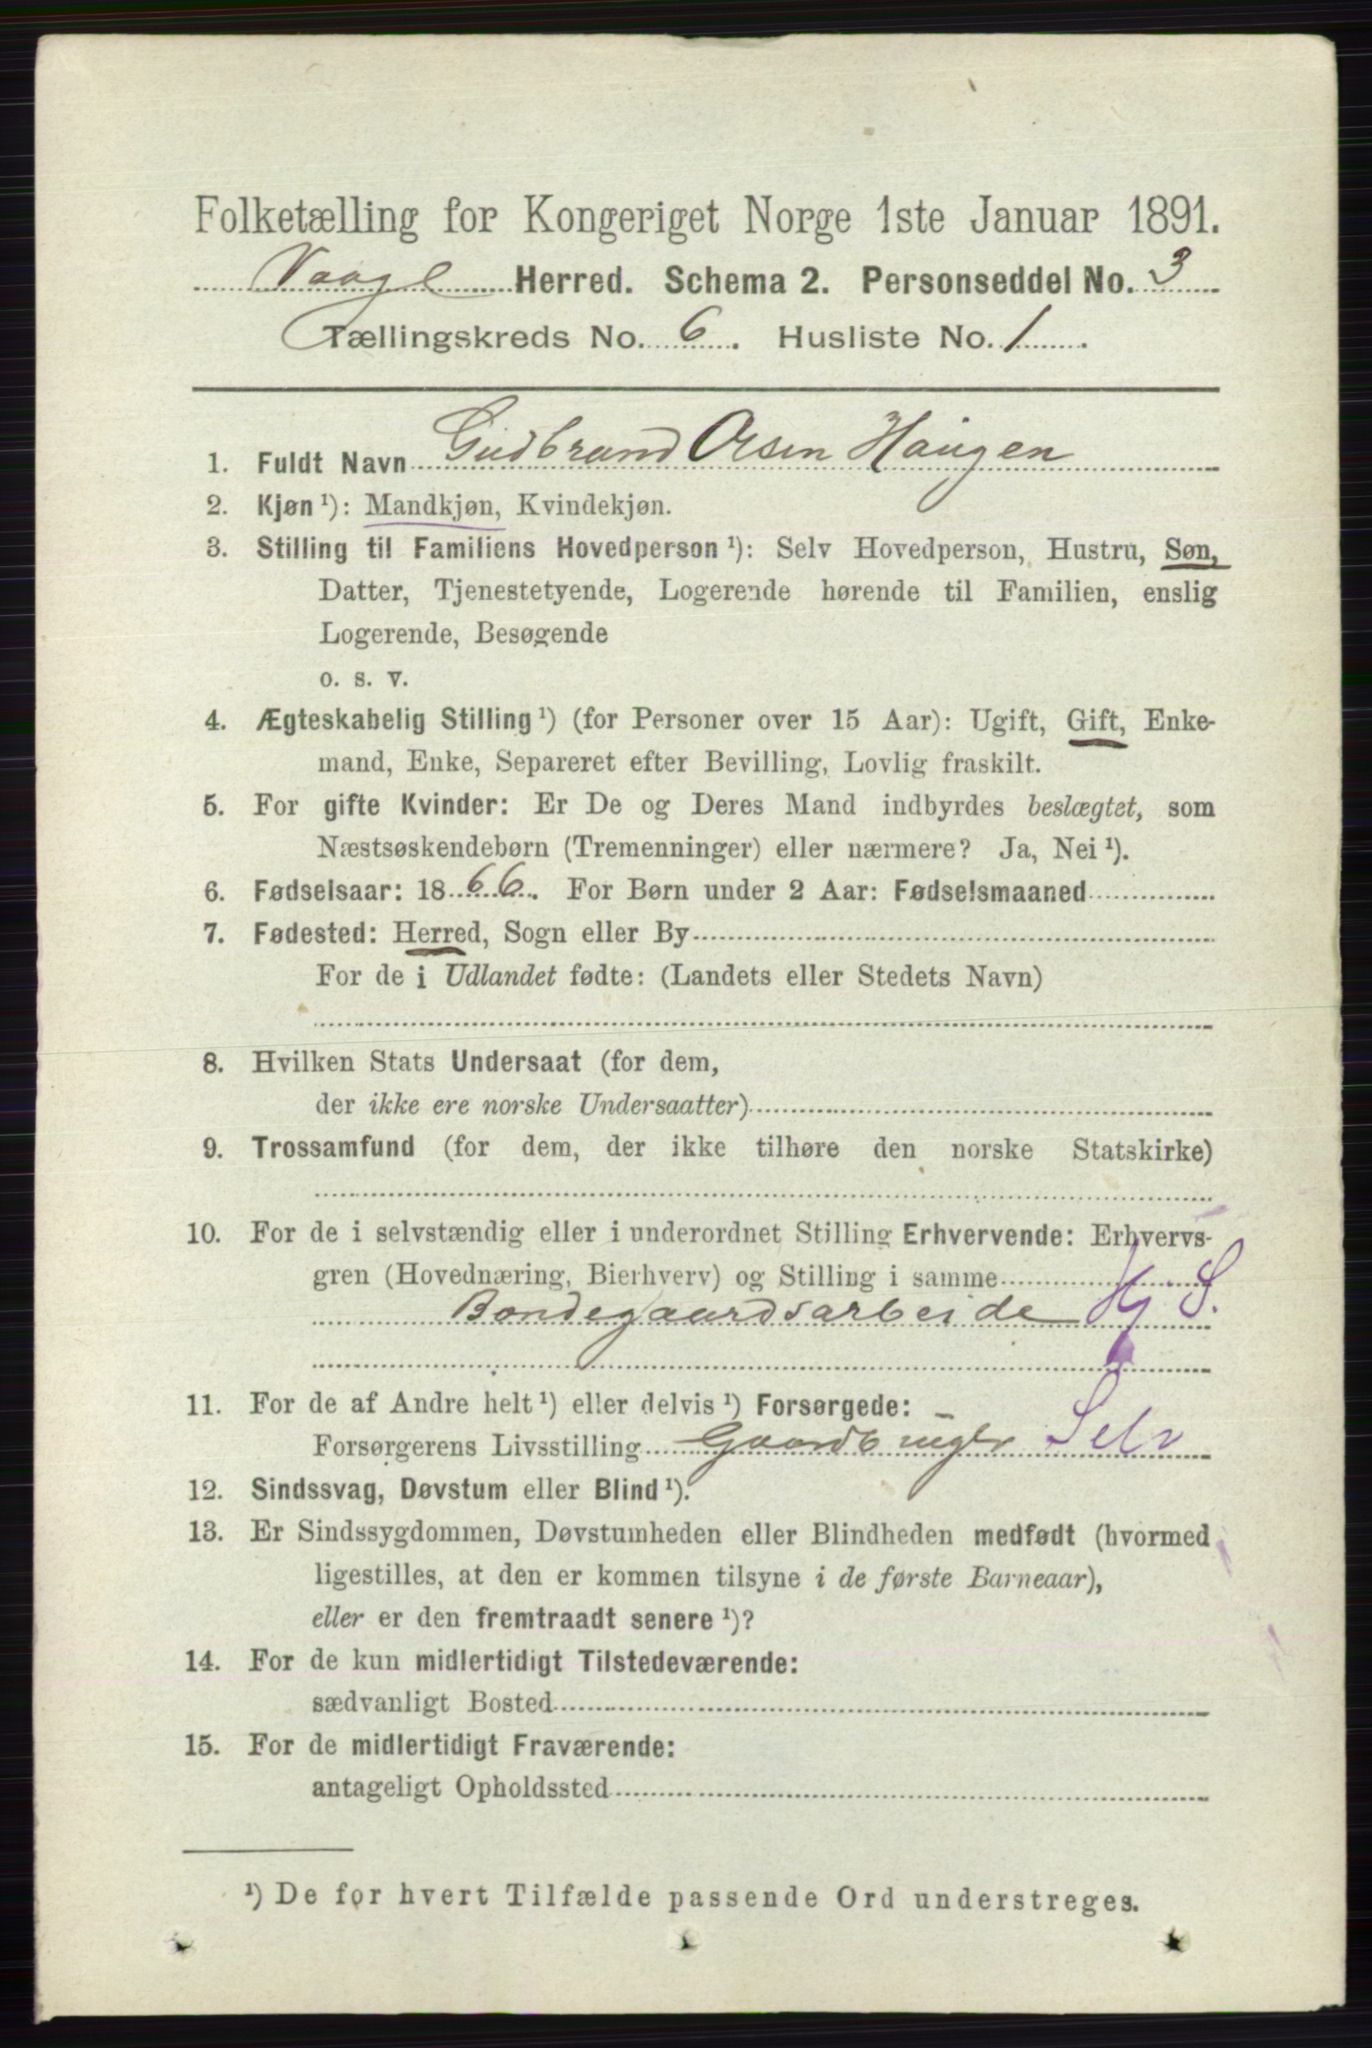 Folketælling for Kongeriget Norge 1ste Januar 1891.
Vaage Herred. Schema 2. Personseddel No. 3
Tællingskreds No. 6. Husliste No. 1.
1. Fuldt Navn Gudbrand Olsen Haugen
2. Kjøn ¹): Mandkjøn, Kvindekjøn.
3. Stilling til Familiens Hovedperson ¹): Selv Hovedperson, Hustru, Søn,
Datter, Tjenestetyende, Logerende hørende til Familien, enslig
Logerende, Besøgende
o. s. v.
4. Ægteskabelig Stilling ¹) (for Personer over 15 Aar): Ugift, Gift, Enke-
mand, Enke, Separeret efter Bevilling, Lovlig fraskilt.
5. For gifte Kvinder: Er De og Deres Mand indbyrdes beslægtet, som
Næstsøskendebørn (Tremenninger) eller nærmere? Ja, Nei ¹).
6. Fødselsaar: 1866. For Børn under 2 Aar: Fødselsmaaned
7. Fødested: Herred, Sogn eller By
For de i Udlandet fødte: (Landets eller Stedets Navn)
8. Hvilken Stats Undersaat (for dem,
der ikke ere norske Undersaatter)
9. Trossamfund (for dem, der ikke tilhøre den norske Statskirke)
10. For de i selvstændig eller i underordnet Stilling Erhvervende: Erhvervs-
gren (Hovednæring, Bierhverv) og Stilling i samme
Bondegaardsarbeide S.
11. For de af Andre helt ¹) eller delvis ¹) Forsørgede:
Forsørgerens Livsstilling Gaardbruger Selv
12. Sindssvag, Døvstum eller Blind ¹).
13. Er Sindssygdommen, Døvstumheden eller Blindheden medfødt (hvormed
ligestilles, at den er kommen tilsyne i de første Barneaar),
eller er den fremtraadt senere ¹)?
14. For de kun midlertidigt Tilstedeværende:
sædvanligt Bosted
15. For de midlertidigt Fraværende:
antageligt Opholdssted
¹) De for hvert Tilfælde passende Ord understreges.